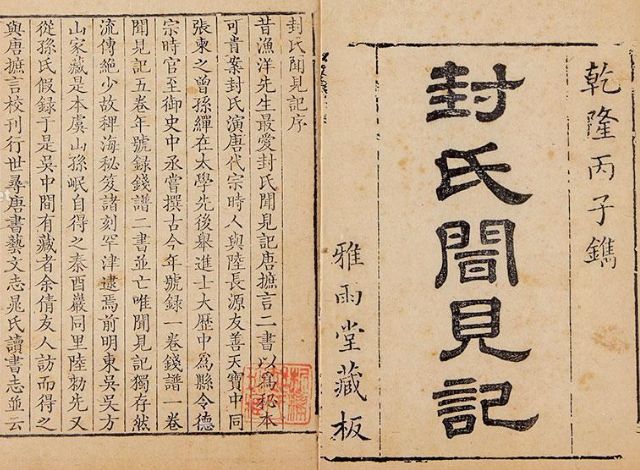 乾隆丙子鐫
封氏聞見記
雅雨堂藏板
封氏聞見記序
昔漁洋先生最愛封氏聞見記唐摭言二書以為秘本
可貴案封氏演唐代宗時人與陸長源友善天寶中同
張柬之曾孫繟在太學先後舉進士大歷中為縣令德
宗時官至御史中丞嘗撰古今年號録一卷錢譜一卷
聞見記五卷年號録錢譜二書並亡唯聞見記獨存然
流傳絕少故稗海秘笈諸刻罕津逮焉前明東吳吳方
山家藏是本虞山孫岷自得之秦酉巖同里陸勑先又
從孫氏假録于是吳中間有藏者余倩友人訪而得之
與唐摭言校刊行世尋唐書藝文志晁氏讀書志並云